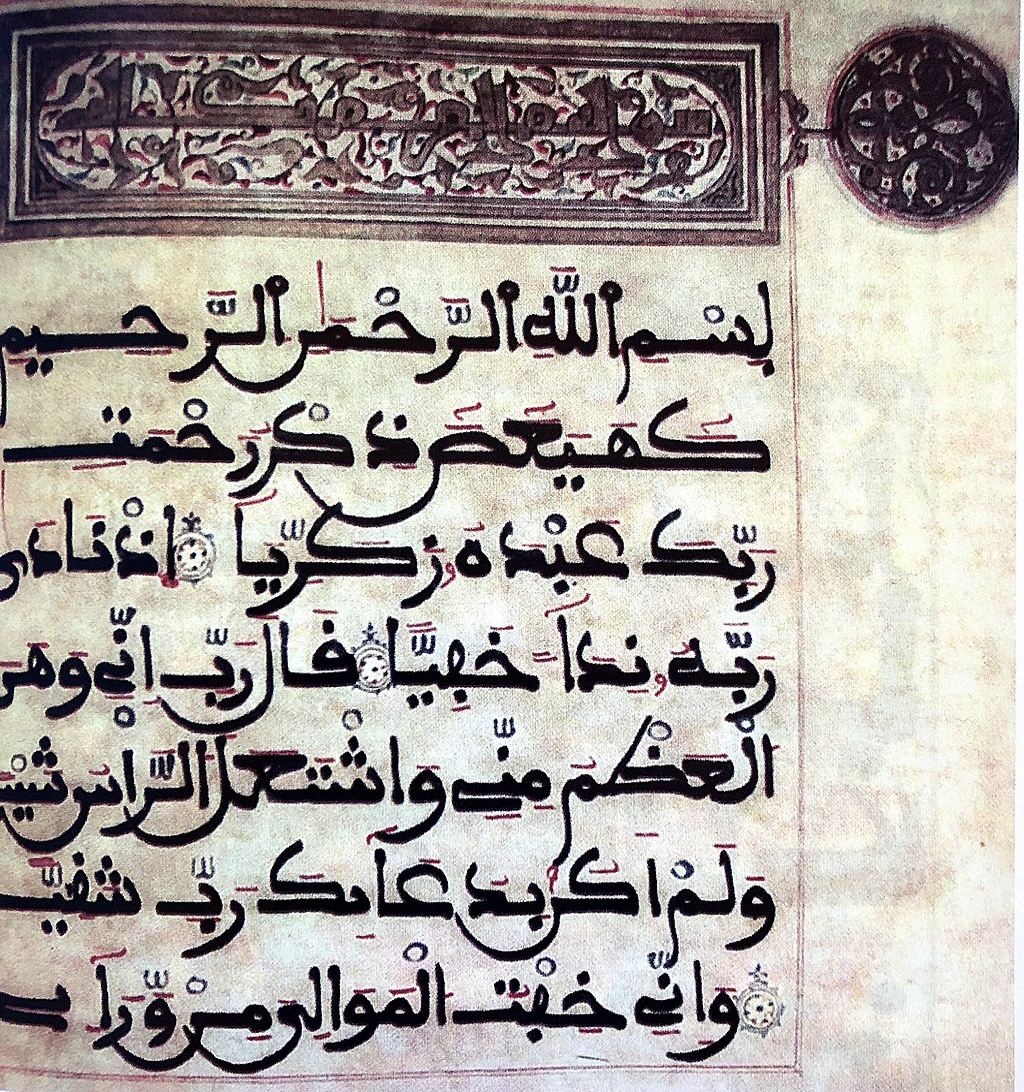 بِسْمِ اللَّهِ الرَّحْمَٰنِ الرَّحِيمِ
كَهيعَصَ ذِكْرُ رَحْمَتِ
رَبِّكَ عَبْدَهُ زَكَرِيَّآ اذْ نَادَى
رَبَّهُ نِدَآ خَفِيّاً قَالَ رَبِّ انِّي وَهَنَ
الْعَظْمُ مِنِّي وَاشْتَعَلَ الرَّاسُ شَيْبـ
وَلَمْ اَكُنْ بِدُعَآئِكَ رَبِّ شَقِيّـ
وَانِّي خِفْتُ الْمَوَالِيَ مِنْ وَّرَآءِي